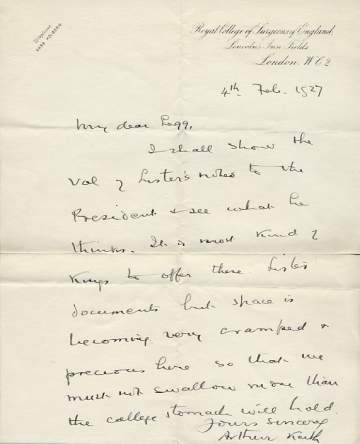 Royal College of Surgeons of England,
Lincoln's Inn Fields
London. W.C.2
4th Feb. 1927
My dear Legg,
I shall show the
vol of Lister's notes to the
President & see what he
thinks. It is most kind of
Kings to offer these Lister
documents but space is
becoming very cramped &
precious here so that we
must not swallow more than
the college stomach will hold.
Yours sincerely
Arthur Keith